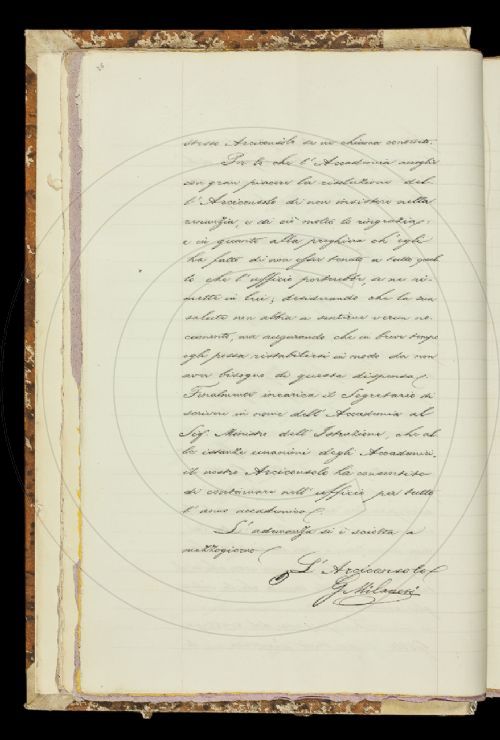 stesso Arciconsolo se ne chiama contento.
Per lo che l'Accademia accoglie
con gran piacere la risoluzione del-
l'Arciconsolo di non insistere nella
renunzia, e di ciò molto lo ringrazia:
e in quanto alla preghiera ch'egli
ha fatto di non esser tenuto a tutto quel-
lo che l'ufficio porterebbe, se ne ri-
mette in lui; desiderando che la sua
salute non abbia a sentirne verun no-
cumento, ma augurando che in breve tempo
egli possa ristabilirsi in modo da non
aver bisogno di questa dispensa.
Finalmente incarica il Segretario di
scrivere in nome dell'Accademia al
Sig. Ministro dell'Istruzione, che al-
le istanze unanimi degli Accademici,
il nostro Arciconsolo ha consentito
di continuare nell'ufficio per tutto
l'anno accademico.
L'adunanza si è sciolta a
mezzogiorno.
L'Arciconsolo
G. Milanesi